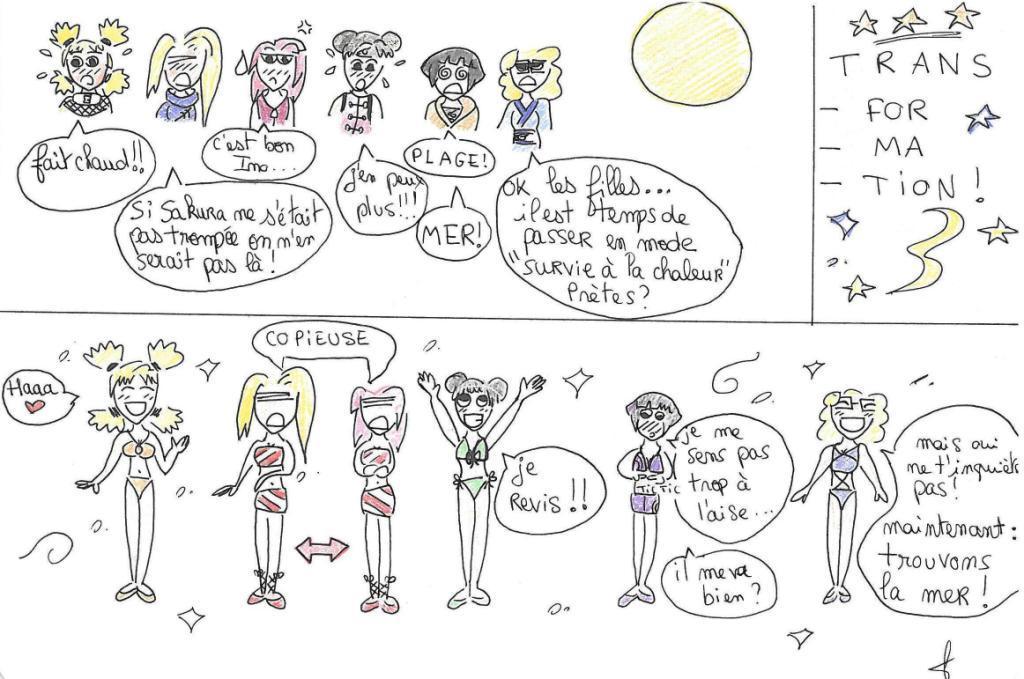 fait chaud!!
Si Sakura ne s'était
pas trompée on n'en
serait pas là !
c'est bon
Ino...
j'en peux
plus!!!
PLAGE!
MER!
OK les filles...
il est temps de
passer en mode
"survie à la chaleur"
Prêtes?
TRANS
- FOR
- MA
- TION!
Haaa
COPIEUSE
je
Revis!!
je me
sens pas
trop à
l'aise...
TIC TIC
il me va
bien?
mais oui
ne t'inquiète
pas!
maintenant:
trouvons
la mer!